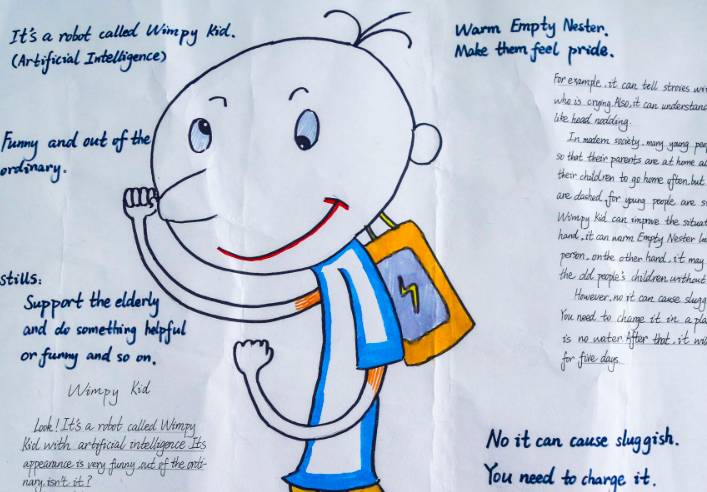 It's a robot called Wimpy Kid.
(Artificial Intelligence)
Funny and out of the
ordinary.
stills:
Support the elderly
and do something helpful
or funny and so on.
Wimpy Kid
Look! It's a robot called Wimpy
Kid with artificial intelligence Its
appearance is very funny out of the ordi-
nary, isn't it?
Warm Empty Nester.
Make them feel pride.
For example, it can tell
who is crying. Also, it can understand
like head nodding.
In modern society, many young
so that their parents are at home
their children to go home often, but
are dashed, for young people are
Wimpy Kid can improve the
hand, it can warm Empty Nester
person, on the other hand, it may
the old people's children without
However, no it can cause
You need to charge it in a
is no water After that, it
for five days.
No it can cause sluggish.
You need to charge it.